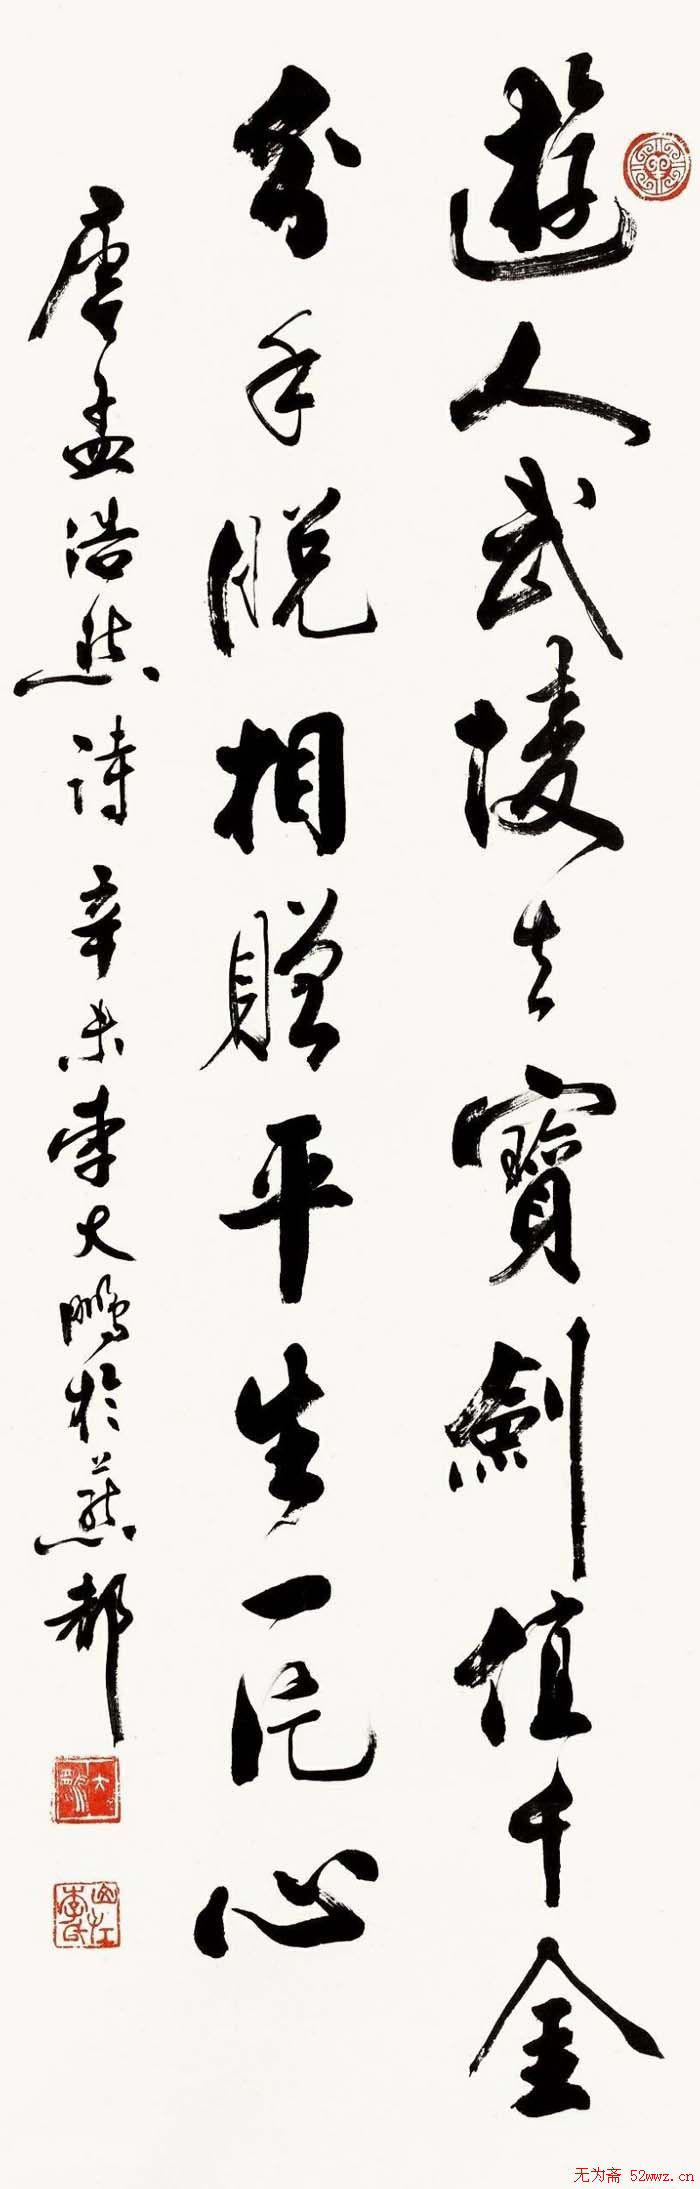 遊人武陵去寶劍值千金
分手脫相贈平生一片心
唐孟浩然詩辛未李大鵬於燕都
大鵬
无为斋 52wwz.cn